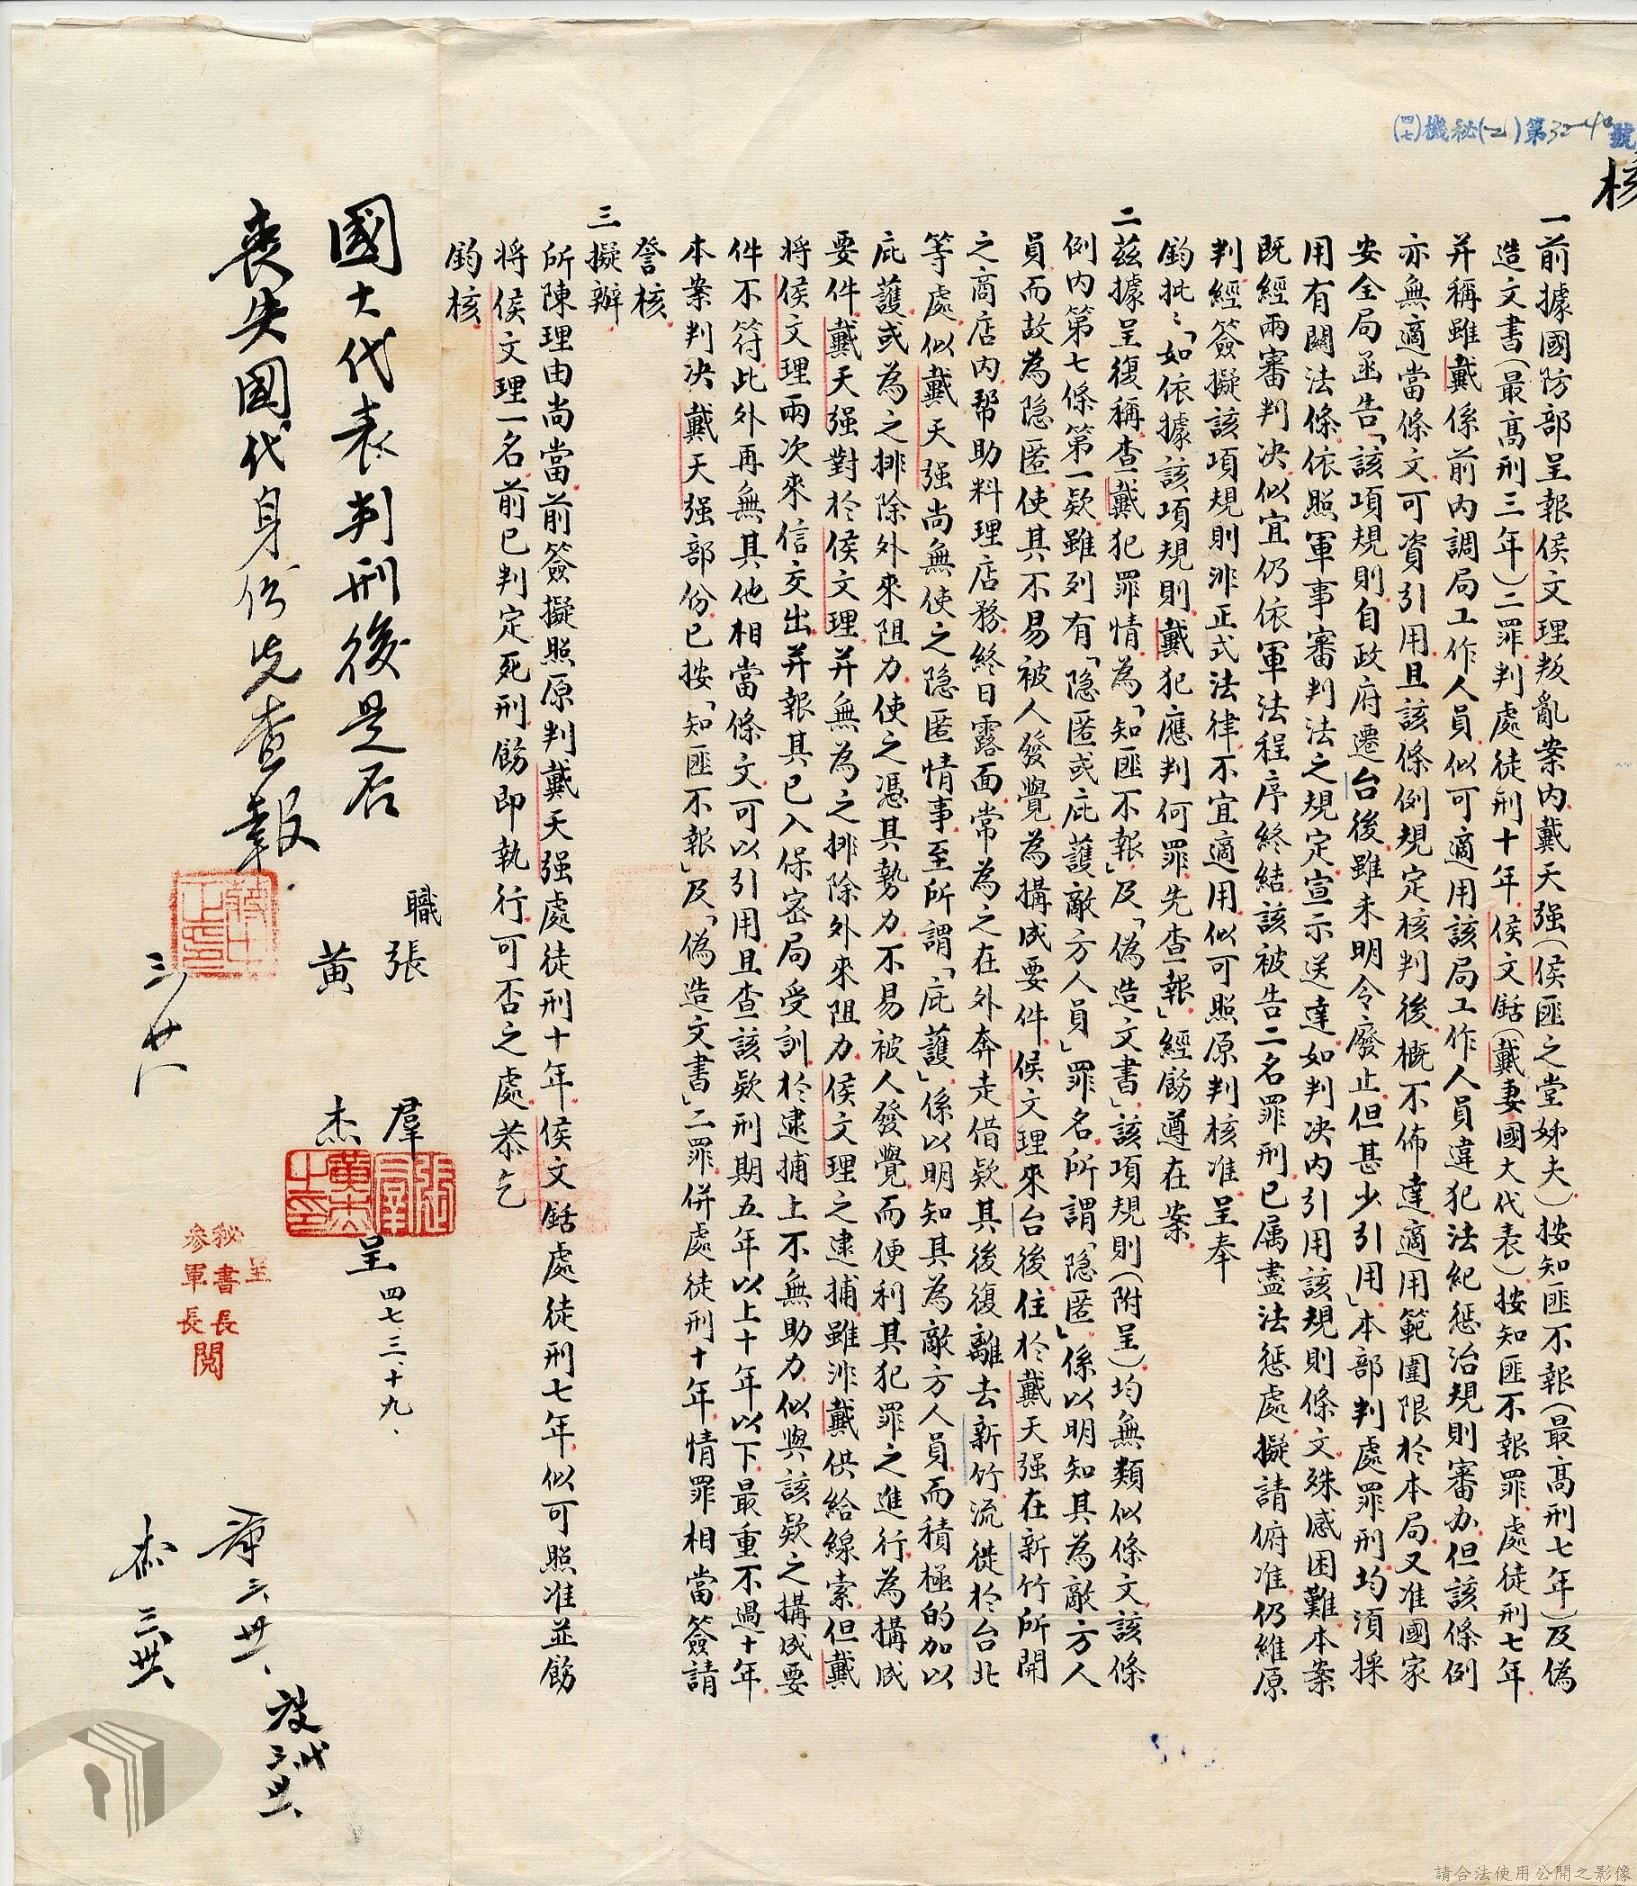 (四七)機秘(乙)第32-40號
核
一前據國防部呈報侯文理叛亂案內戴天强(侯匪之堂姊夫)按知匪不報(最高刑七年)及偽
造文書(最高刑三年)二罪判處徒刑十年侯文𨧱(戴妻國大代表)按知匪不報罪處徒刑七年
并稱雖戴係前內調局工作人員似可適用該局工作人員違犯法紀惩治規則審办但該條例
亦無適當條文可資引用且該條例規定核判後概不佈達適用範圍限於本局又准國家
安全局函告「該項規則自政府遷台後雖未明令廢止但甚少引用」本部判處罪刑均須採
用有關法條依照軍事審判法之規定宣示送達如判决內引用該規則條文殊感困難本案
既經兩審判决似宜仍依軍法程序終結該被告二名罪刑已属盡法惩處擬請俯准仍維原
判經簽擬該項規則非正式法律不宜適用似可照原判核准呈奉
鈞批:「如依據該項規則戴犯應判何罪先查報」經飭遵在案
二茲據呈復稱查戴犯罪情為「知匪不報」及「偽造文書」該項規則(附呈)均無類似條文該條
例內第七條第一欵雖列有「隐匿或庇護敵方人員」罪名所謂「隐匿」係以明知其為敵方人
員而故為隐匿使其不易被人發覺為搆成要件侯文理來台後住於戴天强在新竹所開
之商店內帮助料理店務終日露面常為之在外奔走借欵其後復離去新竹流徙於台北
等處似戴天强尚無使之隐匿情事至所謂「庇護」係以明知其為敵方人員而積極的加以
庇護或為之排除外來阻力使之憑其勢力不易被人發覺而便利其犯罪之進行為搆成
要件戴天强對於侯文理并無為之排除外來阻力侯文理之逮捕雖非戴供給線索但戴
將侯文理兩次來信交出并報其已入保密局受訓於逮捕上不無助力似與該欵之搆成要
件不符此外再無其他相當條文可以引用且查該欵刑期五年以上十年以下最重不過十年
本案判决戴天强部份已按「知匪不報」及「偽造文書」二罪併處徒刑十年情罪相當簽請
詧核
三擬辦
所陳理由尚當前簽擬照原判戴天强處徒刑十年侯文𨧱處徒刑七年似可照准並飭
將侯文理一名前已判定死刑飭即執行可否之處恭乞
鈞核
職張羣
黃杰
呈 四七、三、十九、
國大代表判刑後是否
喪失國代身份先查報
蔣中正印
三、廿八
張羣
黃杰之印
呈
秘書長
參軍長
閱
請合法使用公開之影像